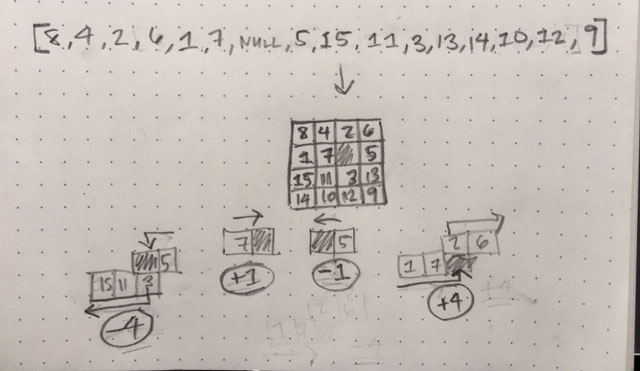 [8,4,2,6,1,7,NULL,5,15,11,3,13,14,10,12,9]
8 4 2 6
1 7 5
15 11 3 13
14 10 12 9
5
15 11 3
-4
7
+1
5
-1
2 6
1 7
+4
+4